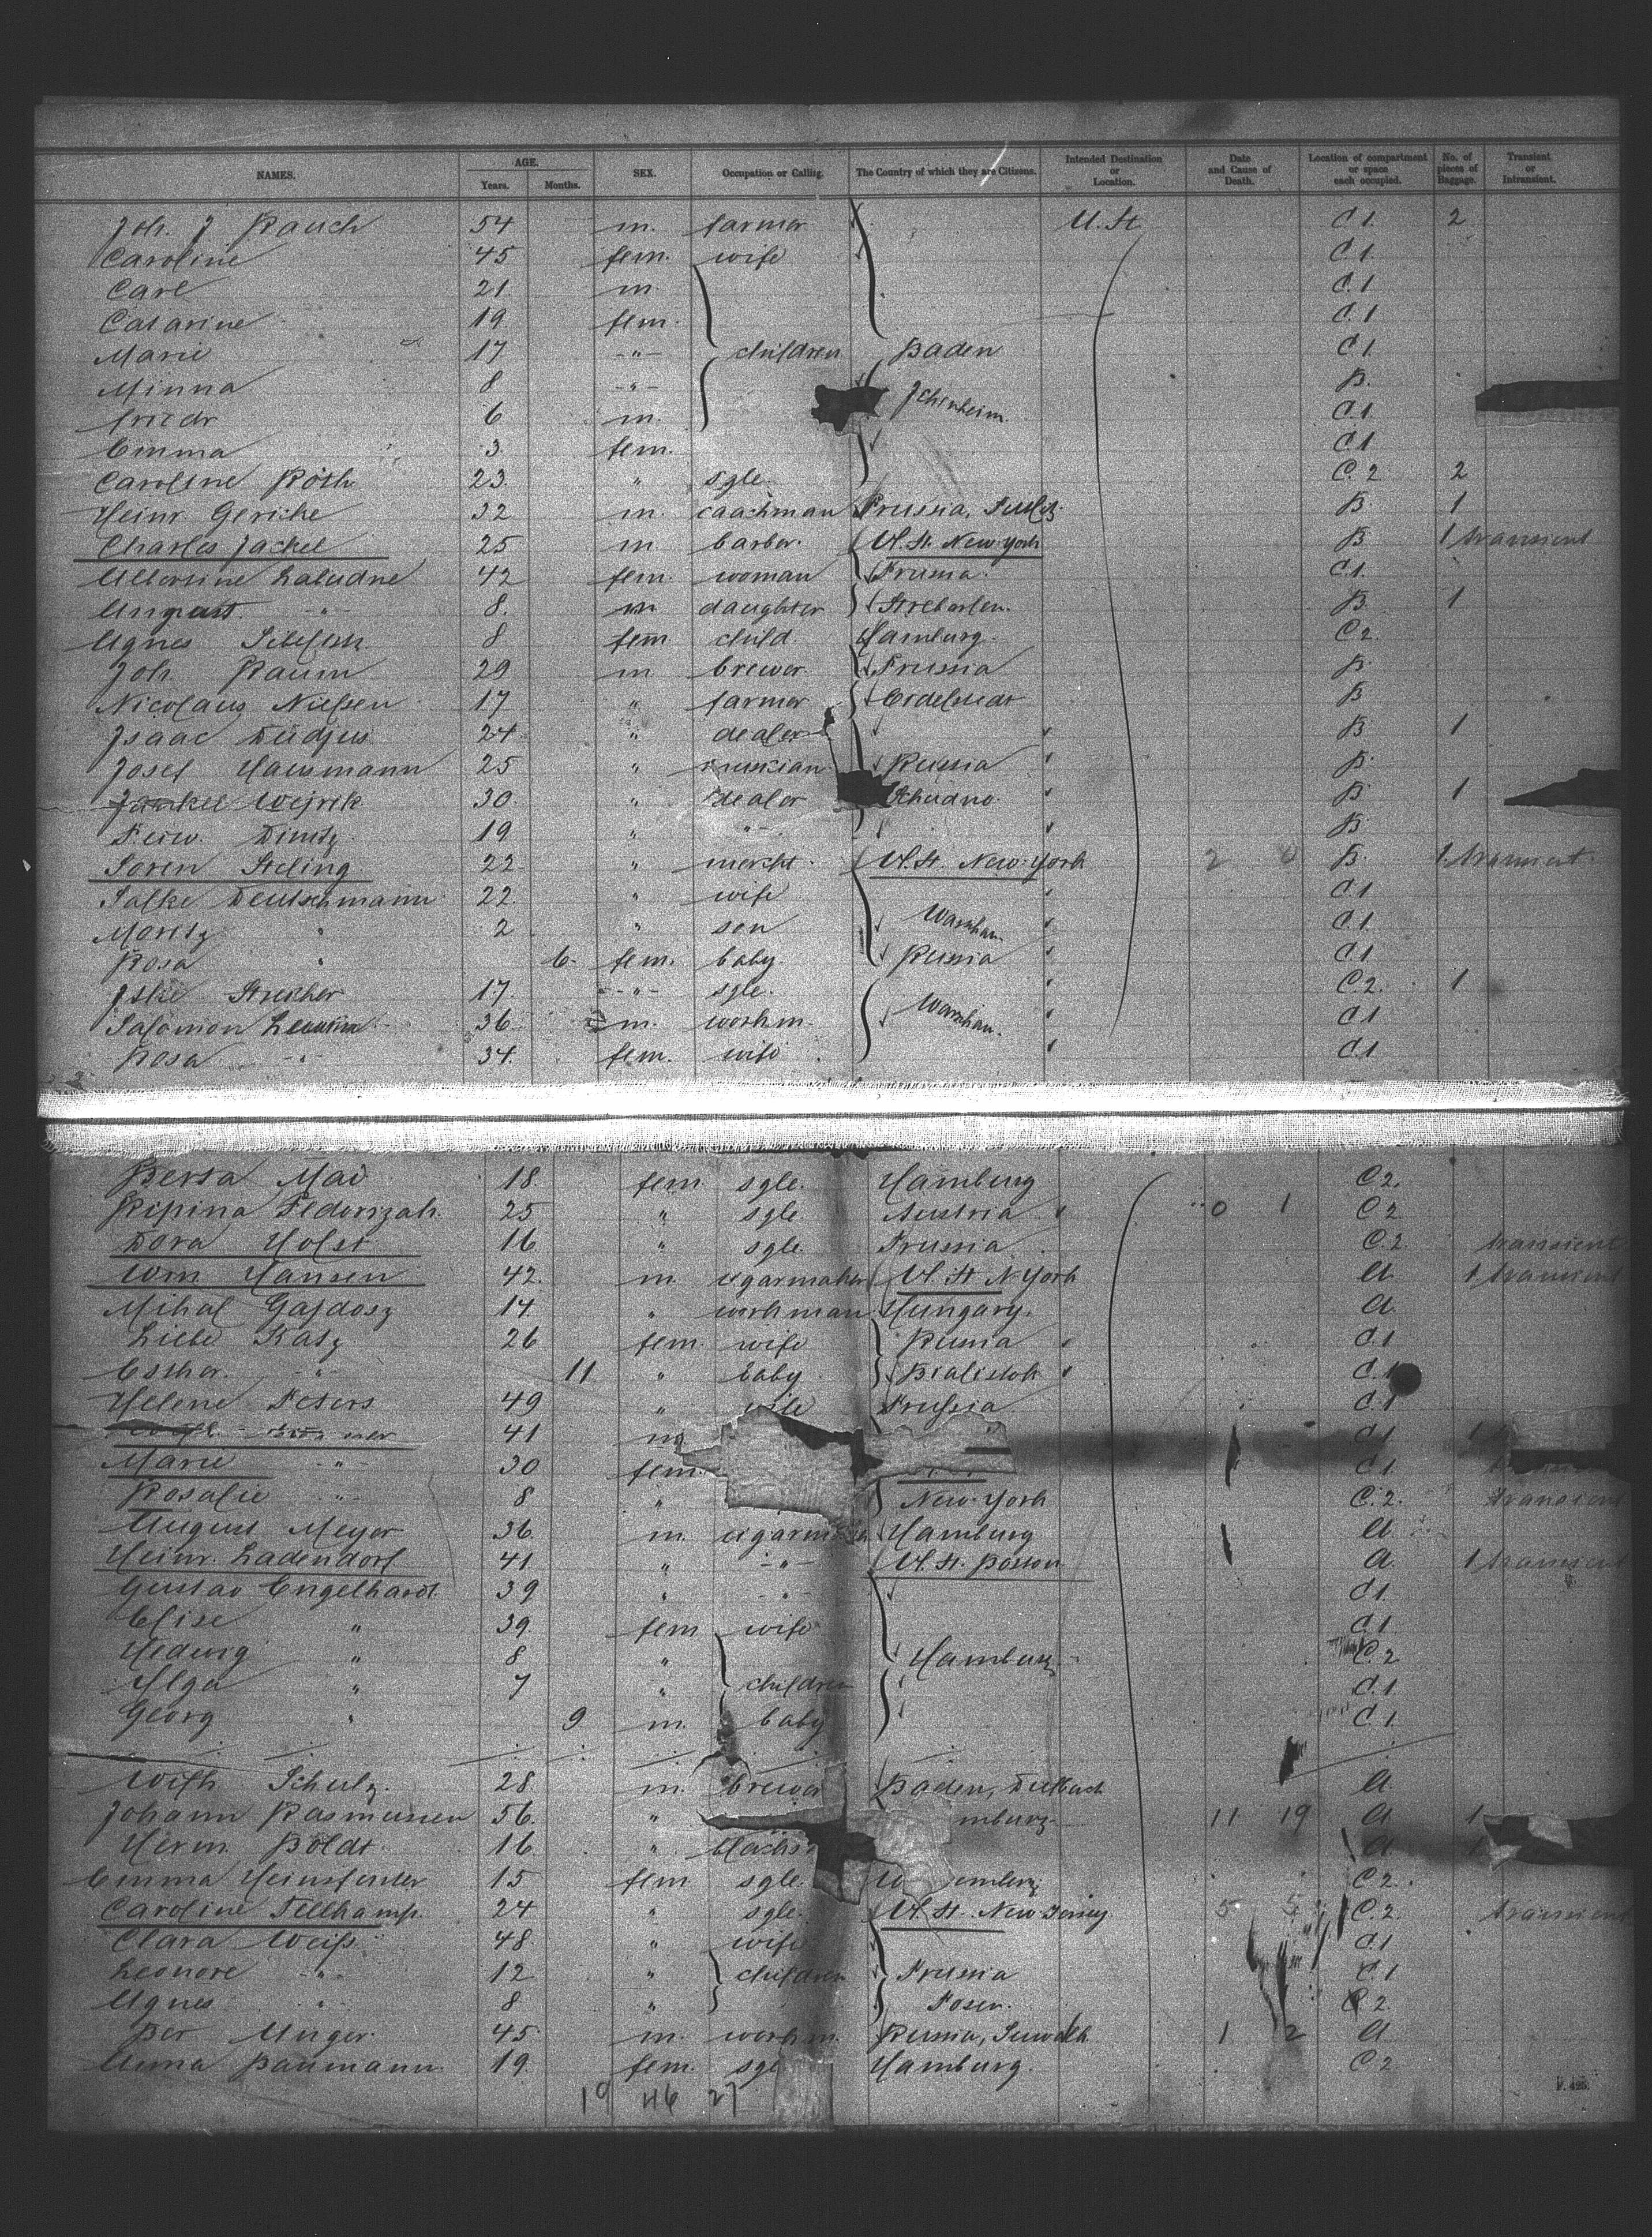 NAMES. AGE. Years. Months. SEX. Occupation or Calling. The Country of which they are Citizens. Intended Destination or Location. Date and Cause of Death. Location of compartment or space each occupied. No. of pieces of Baggage. Transient or Intransient.
Joh. J Rauch 54 m. farmer U. St C 1. 2
Caroline 45 fem. wife C 1.
Carl 21 m. C. 1
Catarine 19 fem. C. 1
Marie 17 -"- children Baden C 1.
Minna 8 -"- B.
Friedr 6 m. Ichenheim C 1.
Emma 3 fem. C 1
Caroline Röth 23 " sgle C. 2 2
Heinr Gericke 32 m. coachman Prussia, B 1
Charles Jackel 25 m barber U. St. New-York B 1 transient
Albertine 42 fem. woman Prussia. C 1.
August -"- 8. m daughter B 1
Agnes 8 fem. child. Hamburg. C 2.
Joh Raum 29 m brewer Prussia B
Nicolaus Nielsen 17 " farmer Eidelstedt B
Isaac 24 " dealer " B 1
Josef Hausmann 25 " Russia " B
Wejrik 30 " dealer " B 1
19 " -"- " B
Soren Steling 22 " mercht. U. St. New-York 2 0 B. 1 transient
Salke Deutschmann 22. " wife " C 1
Moritz " 2 " son Warschau " C. 1
Rosa " 6 fem. baby Russia " C 1
17. -"- sgle. " C 2. 1
Salomon 36 m. workm. Warschau. " C 1
Rosa -"- 34. fem. wife " C. 1
Berta Mai 18 fem sgle. Hamburg C 2.
25 " sgle Austria " 0 1 C 2
Dora Holst 16 " sgle Prussia C. 2 transient
Wm Hansen 42. m. cigarmaker U. St N York A 1 transient
Mihal Gajdosz 14. " workman Hungary. A.
Liebe Katz 26 fem. wife Russia " C. 1
Esther -"- 11 " baby Bialistok " C. 1
Helene Peters 49 " wife Prussia C. 1
41 m C 1
Marie -"- 30 fem. C 1
Rosalie -"- 8 " New-York C. 2. transient
August Meyer 36 m. Hamburg A
Heinr. Ladendorf 41 " -"- U. St. Boston A. 1 transient
Gustav Engelhardt 39 " -"- C 1.
Elise " 39. fem wife C. 1
Hedwig " 8 " Hamburg C. 2
Olga " 7 " children C. 1
Georg " 9 m. baby C. 1.
Wilh Schulz. 28. m. brewer Baden, A
Johann Rasmussen 56. " mburg 11 19 A 1
Herm. Boldt 16 " A 1
Emma 15 fem sgle. C 2.
Caroline Tellkamp. 24 " sgle. U. St. New-Jersey 5 5 C. 2. transient
Clara Weiss 48 " wife C. 1
Leonore -"- 12 " children Prussia C. 1
Agnes -"- 8 " Posen. C 2
Ber Unger 45 m. workm. Russia, Suwalk 1 2 A
Anna Baumann 19 fem. sgl Hamburg. C 2
19 46 27